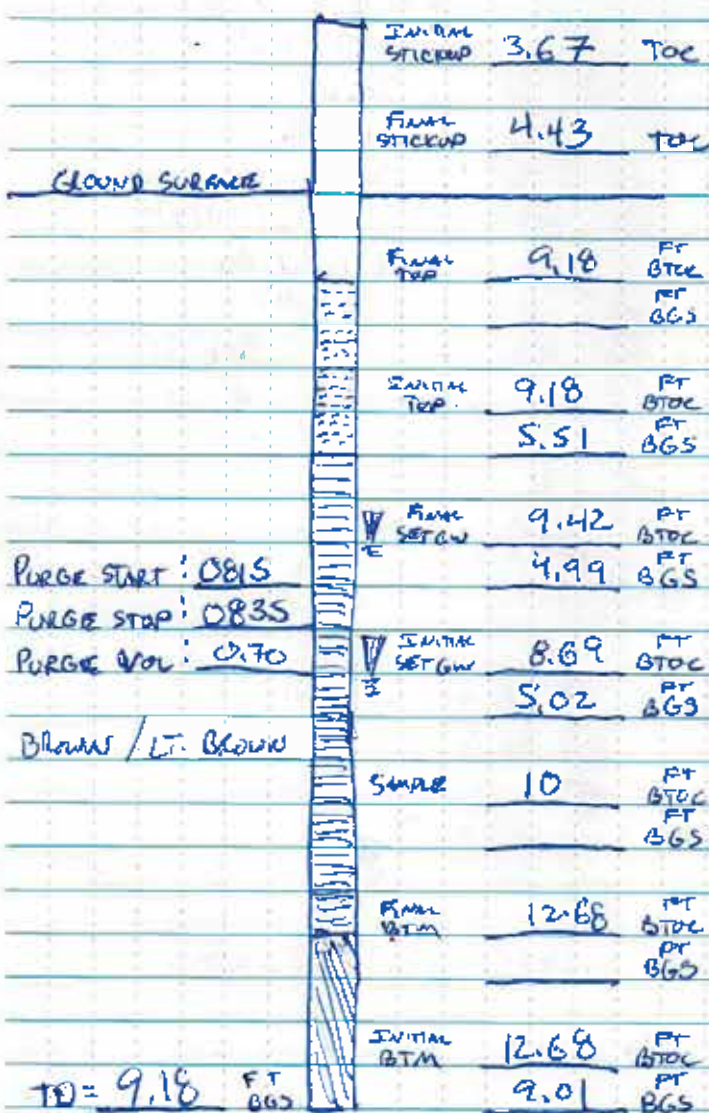 INITIAL STICKUP 3.67 TOC
FINAL STICKUP 4.43 TOC
GROUND SURFACE
FINAL TOP 9.18 FT BTOC
FT BGS
INITIAL TOP 9.18 FT BTOC
5.51 FT BGS
FINAL SET GW 9.42 FT BTOC
PURGE START: 0815 4.99 FT BGS
PURGE STOP: 0835
PURGE VOL: 0.70 INITIAL SET GW 8.69 FT BTOC
5.02 FT BGS
BROWN / LT. BROWN
SAMPLE 10 FT BTOC
FT BGS
FINAL BTM 12.68 FT BTOC
FT BGS
INITIAL BTM 12.68 FT BTOC
TD = 9.18 FT BGS 9.01 FT BGS